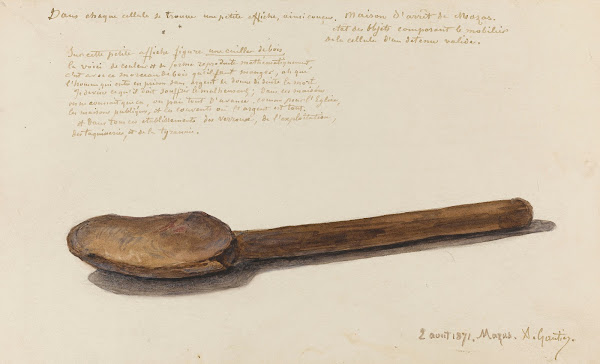 Dans chaque cellule se trouve une petite affiche, ainsi conçue, Maison d'arrêt de Mazas.
état des objets composant le mobilier
de la cellule d'un détenu valide.
Sur cette petite affiche figure, une cuiller de bois,
la voici de couleur et de forme reproduite mathématiquement,
c'est avec ce morceau de bois qu'il faut manger,
l'homme qui entre en prison sans argent
ce qu'il doit souffrir le malheureux; Dans ces maisons
un peu tout d'avance, comme pour l'église,
les maisons publiques, et les couvents où l'argent est tout,
et dans tous ces établissements des verroux, de l'exploitation,
des taquineries, et de la tyrannie.
2 août 1871. Mazas. A. Gautier.